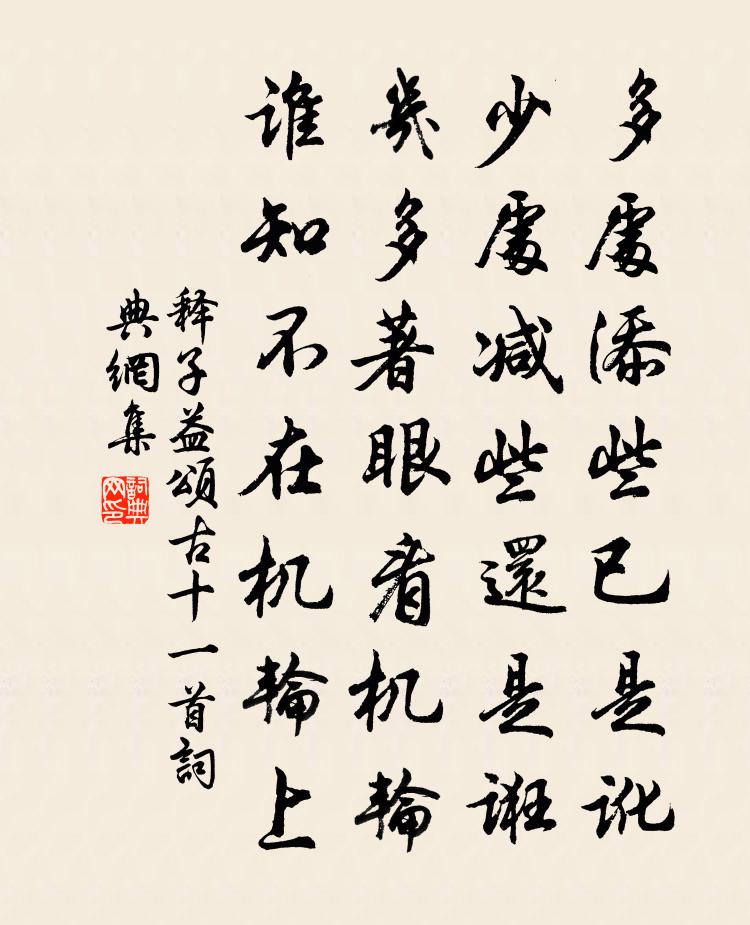 多處添些已是訛
少處减些還是誑
幾多著眼看机輪
誰知不在机輪上
释子益頌古十一首詞
典網集
詞典网印